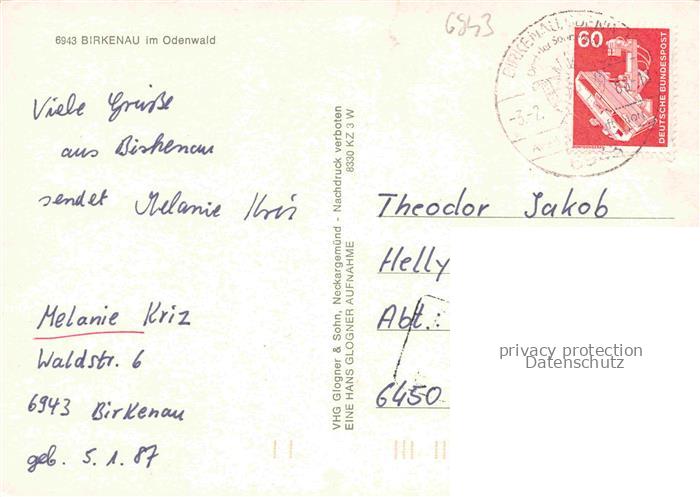 6943 BIRKENAU im Odenwald
6943
60
DEUTSCHE BUNDESPOST
Viele Grüße
aus Birkenau
sendet Melanie Kriz
Melanie Kriz
Waldstr. 6
6943 Birkenau
geb. 5.1.87
VHG Glogner & Sohn, Neckargemünd - Nachdruck verboten
EINE HANS GLOGNER AUFNAHME 8330 KZ 3 W
Theodor Jakob
Helly
Abt.:
6450
privacy protection
Datenschutz